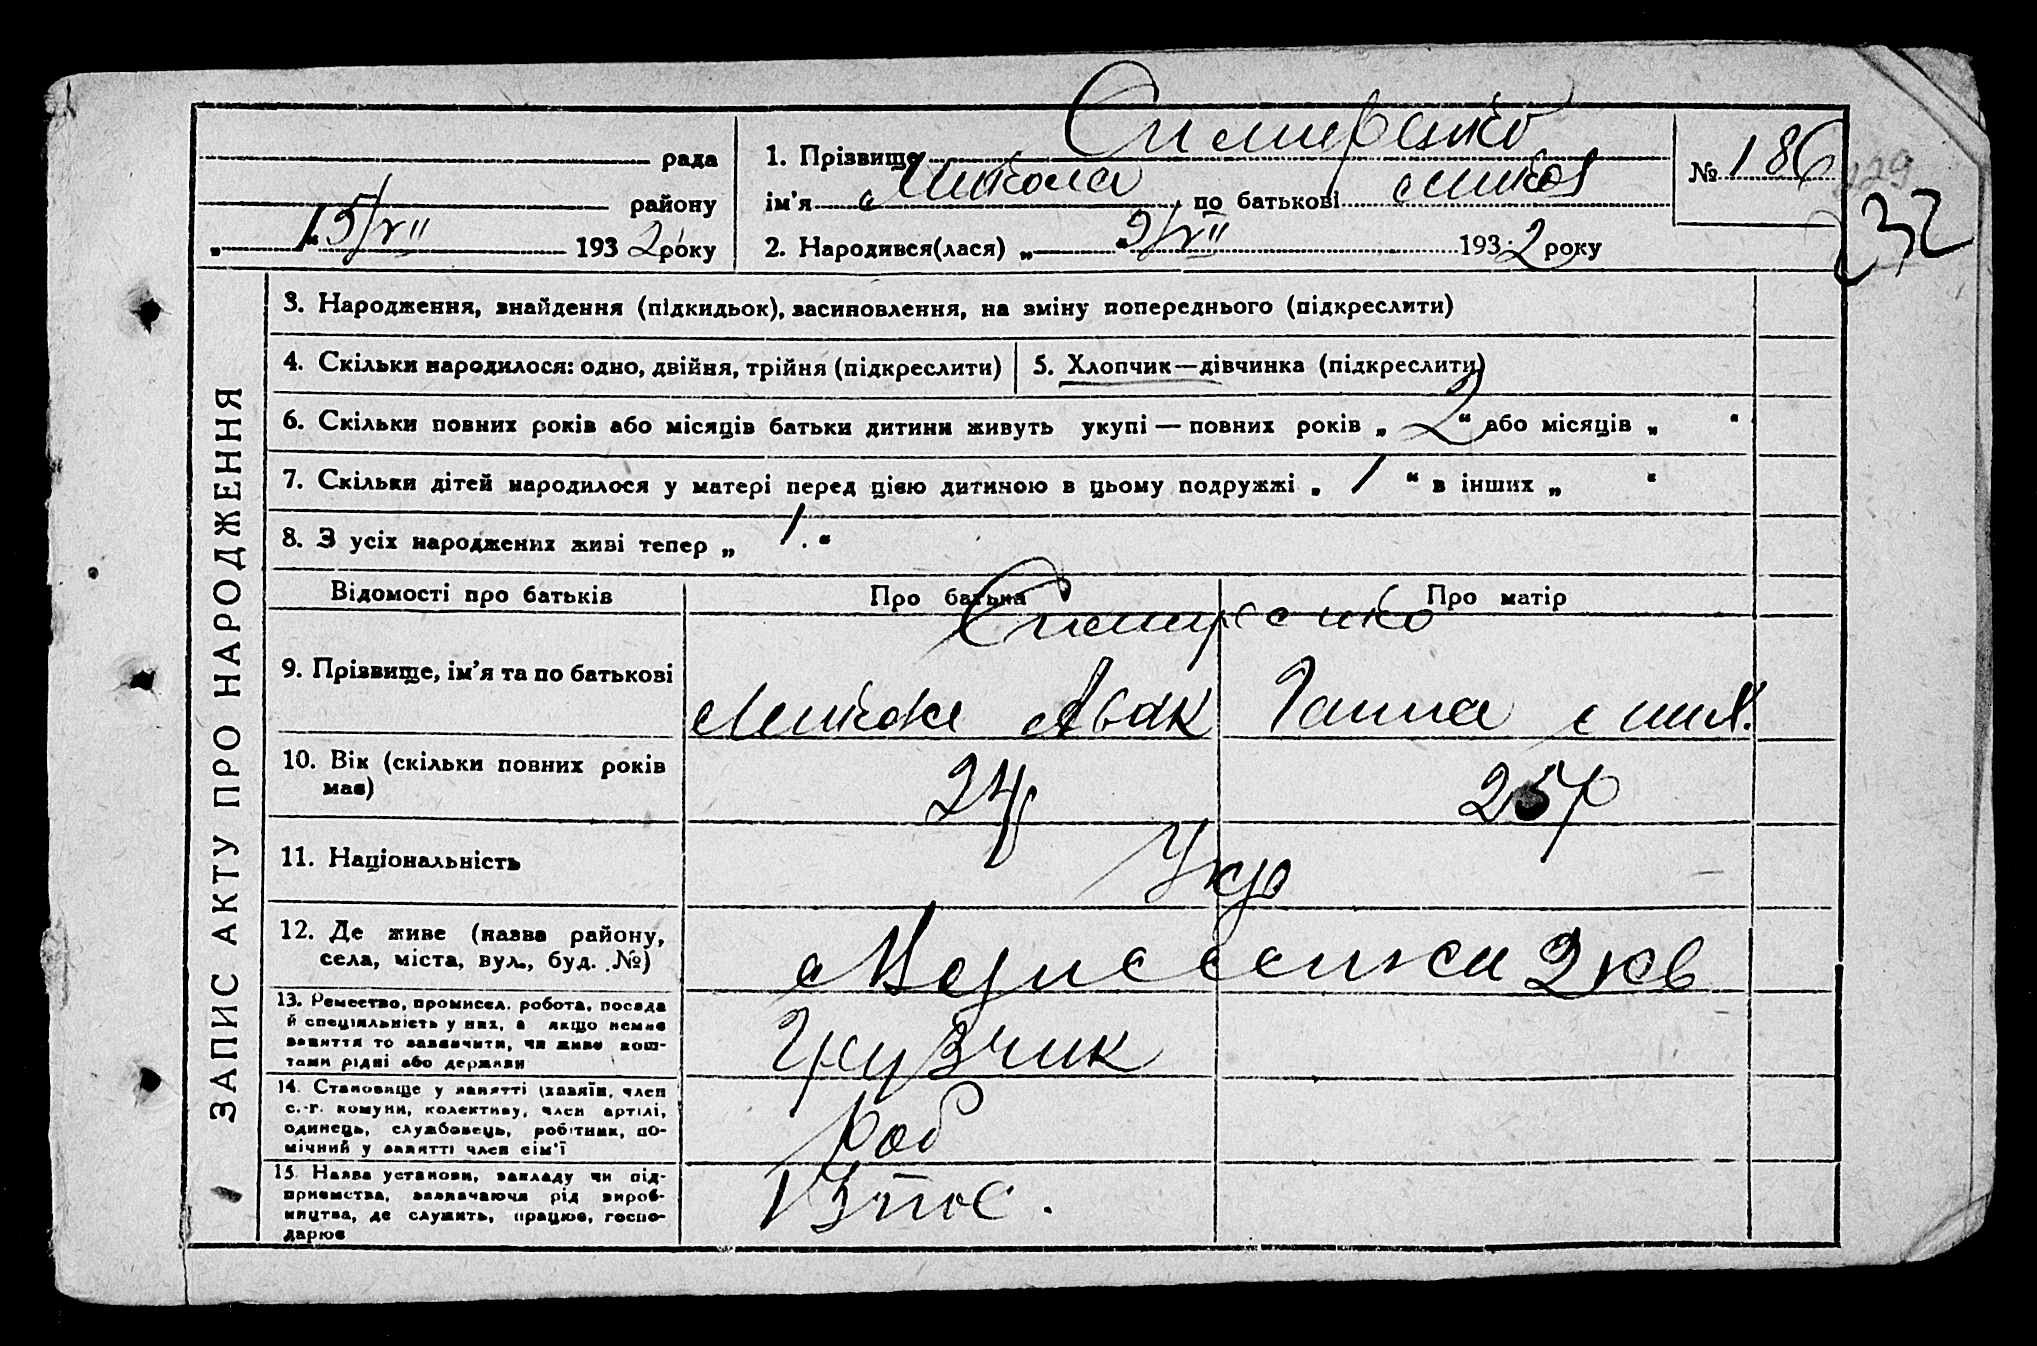 Симиренко
рада
1. Прізвище
№ 186
району
ім'я Микола по батькові Микол
232
„ 15/VII 1932 року
2. Народився(лася) „ 9/VII 1932 року
ЗАПИС АКТУ ПРО НАРОДЖЕННЯ
3. Народження, знайдення (підкидьок), засиновлення, на зміну попереднього (підкреслити)
4. Скільки народилося: одно, двійня, трійня (підкреслити)
5. Хлопчик—дівчинка (підкреслити)
6. Скільки повних років або місяців батьки дитини живуть укупі — повних років „ 2 “ або місяців „ “
7. Скільки дітей народилося у матері перед цією дитиною в цьому подружжі „ 1 “ в інших „ “
8. З усіх народжених живі тепер „ 1. “
Відомості про батьків
Про батька
Про матір
Симиренко
9. Прізвище, ім'я та по батькові
Микола
Ганна
10. Вік (скільки повних років має)
24
25р
11. Національність
Укр
12. Де живе (назва району,
села, міста, вул., буд. №)
2 кв
13. Ремество, промисел, робота, посада
й спеціяльність у них, а якщо немає
заняття то зазначити, чи живе кош-
тами рідні або держави
Грузчик
14. Становище у занятті (хазяїн, член
с.-г. комуни, колективу, член артілі,
одинець, службовець, робітник, по-
мічний у занятті член сім'ї
роб
15. Назва установи, закладу чи під-
приємства, зазначаючи рід вироб-
ництва, де служить, працює, госпо-
дарює